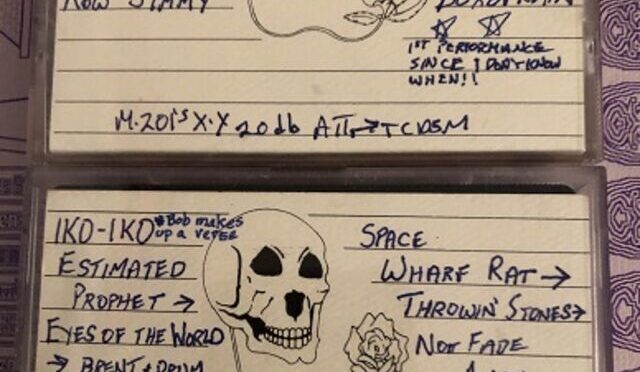 ROW JIMMY
1ST PERFORMANCE
SINCE I DON'T KNOW
WHEN!!
M.201'S X.Y 20db ATT→TCD5M
IKO-IKO *Bob makes
up a verse
ESTIMATED
PROPHET →
EYES OF THE WORLD
→ BRENT + DRUM
SPACE
WHARF RAT →
THROWIN' STONES→
NOT FADE